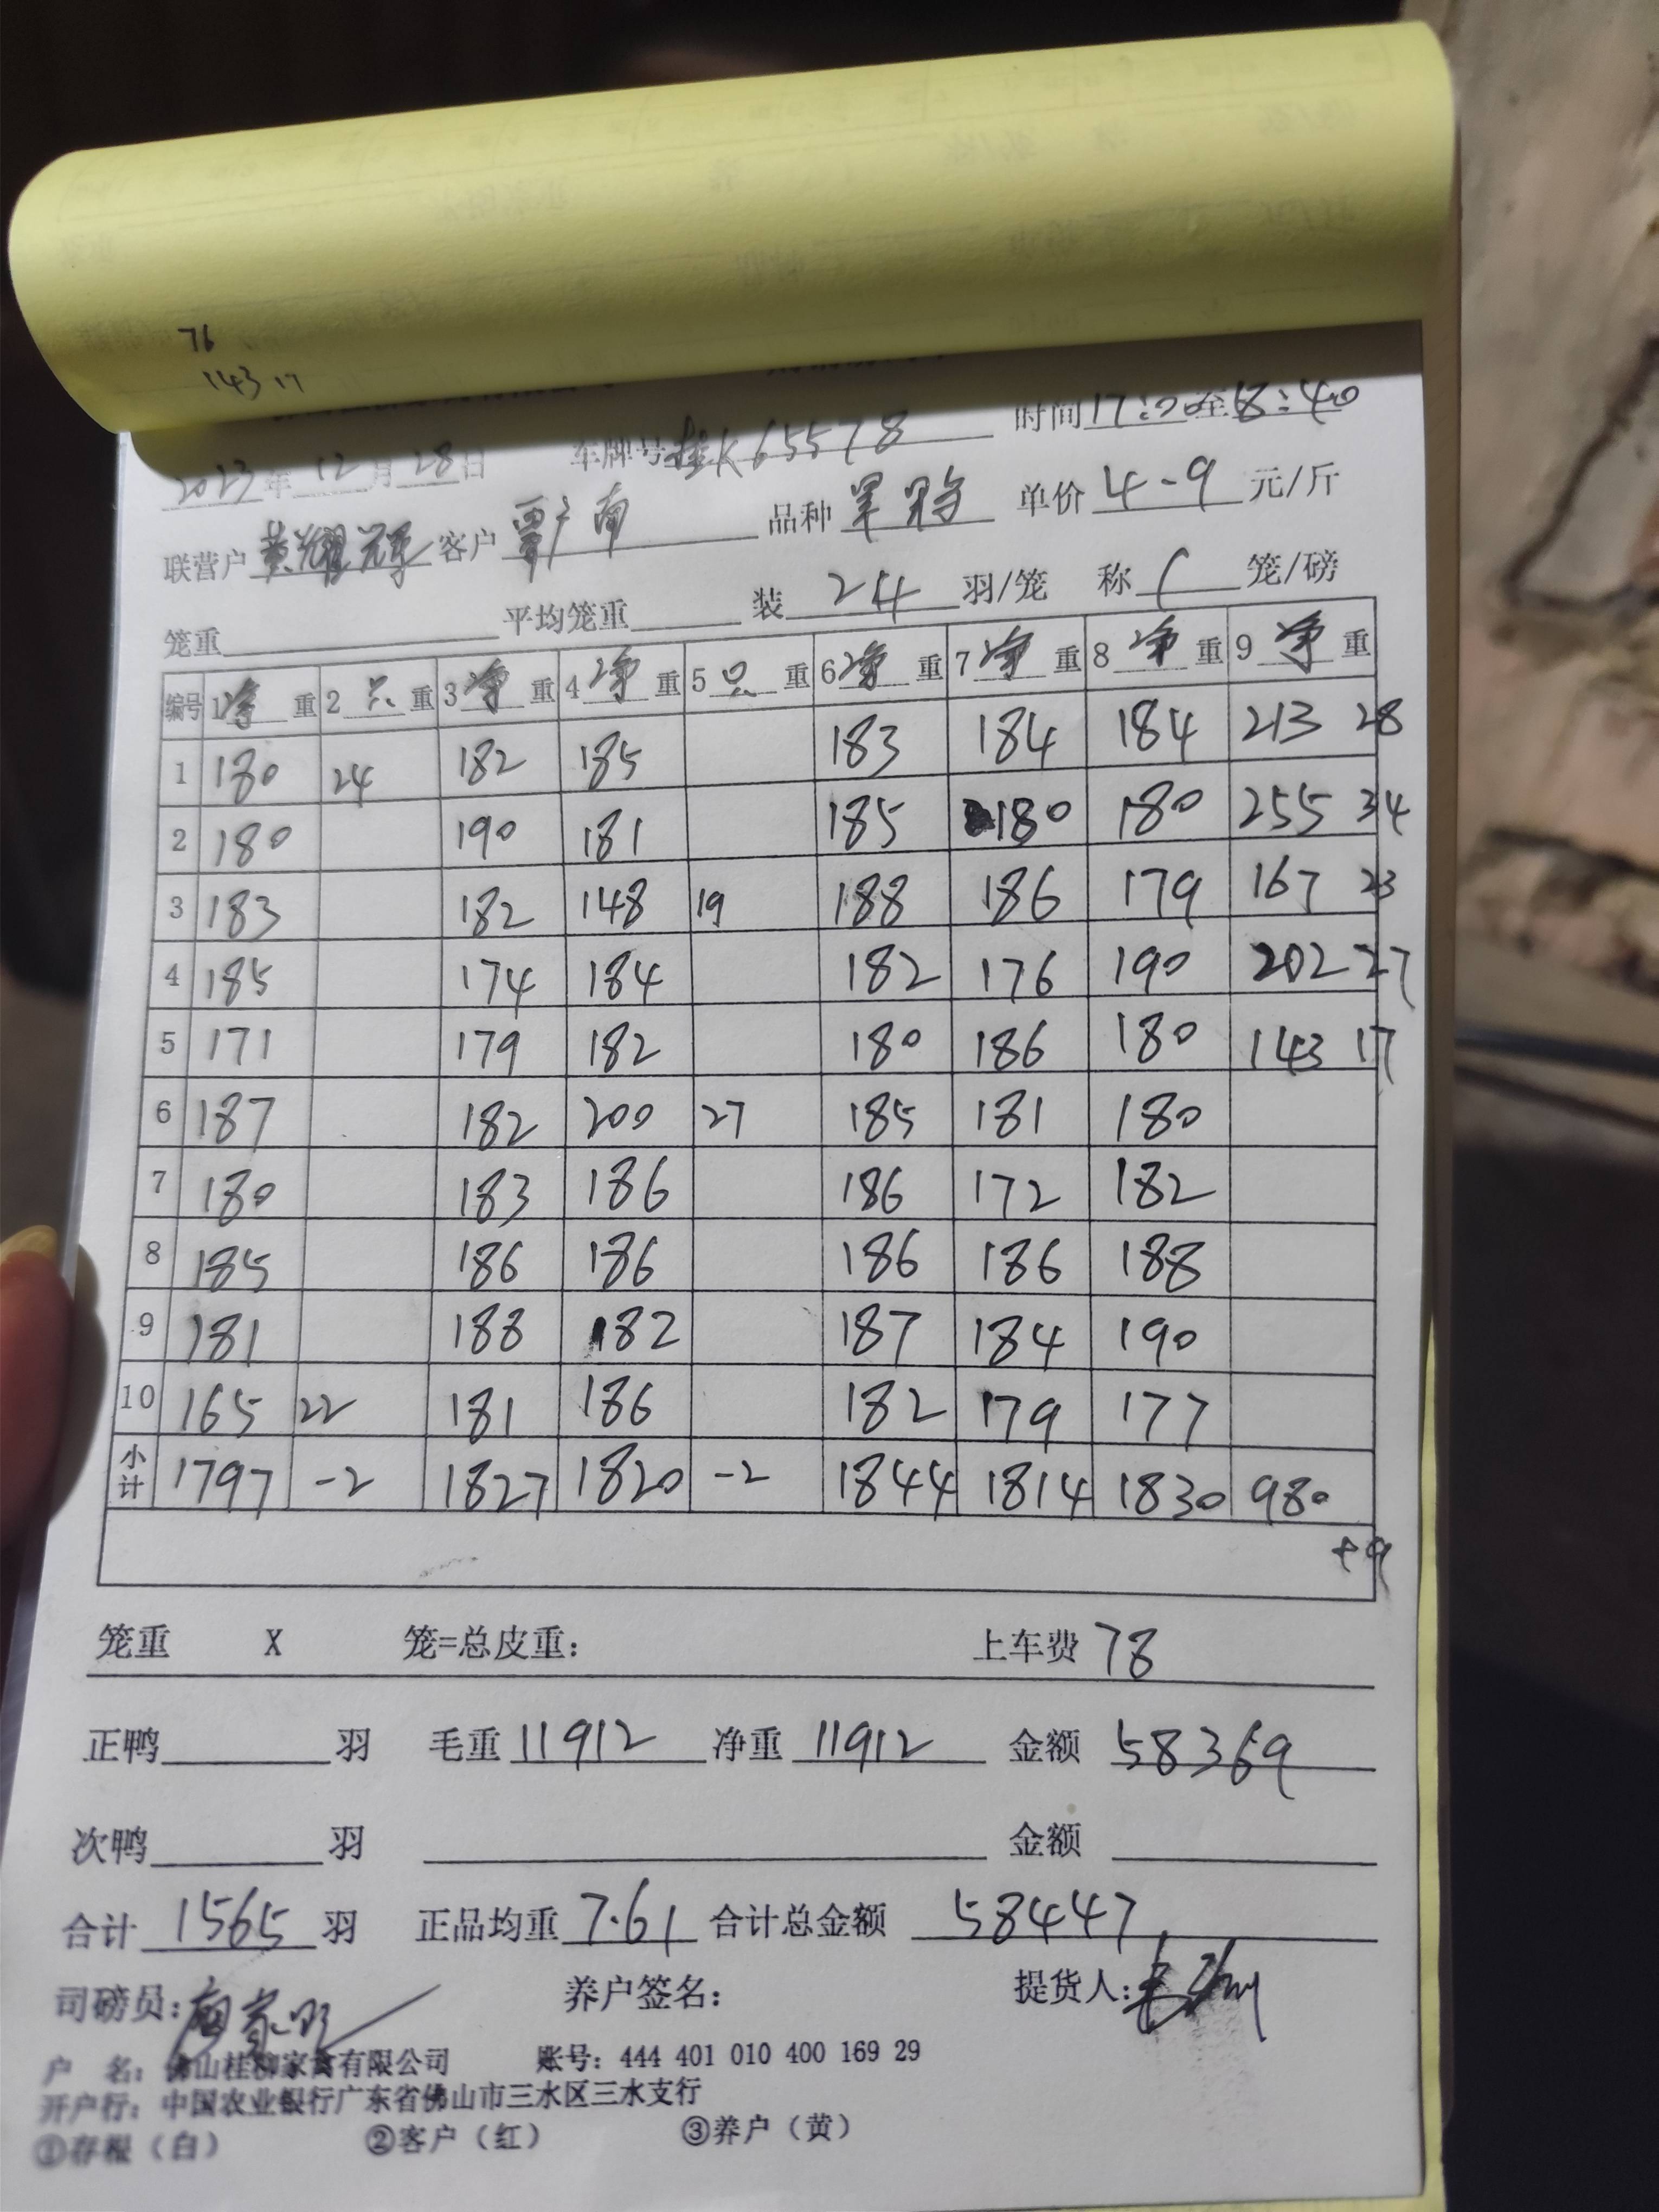 76
143 17
2023年12月28日 车牌号桂K65578 时间17:20至18:40
联营户黄耀冠 客户覃广南 品种 单价4-9元/斤
笼重 平均笼重 装24羽/笼 称 笼/磅
编号 1净重 2只重 3净重 4净重 5只重 6净重 7净重 8净重 9净重
1 180 24 182 185 183 184 184 213 28
2 180 190 181 185 180 180 255 34
3 183 182 148 19 188 186 179 167 23
4 185 174 184 182 176 190 202 27
5 171 179 182 180 186 180 143 17
6 187 182 200 27 185 181 180
7 180 183 186 186 172 182
8 185 186 186 186 186 188
9 181 188 182 187 184 190
10 165 22 181 186 182 179 177
小计 1797 -2 1827 1820 -2 1844 1814 1830 980
+9
笼重 X 笼=总皮重: 上车费 78
正鸭 羽 毛重 11912 净重 11912 金额 58369
次鸭 羽 金额
合计 1565 羽 正品均重 7.61 合计总金额 58447
司磅员: 养户签名: 提货人:
户 名: 佛山桂柳家禽有限公司 账号: 444 401 010 400 169 29
开户行: 中国农业银行广东省佛山市三水区三水支行
①存根(白) ②客户(红) ③养户(黄)